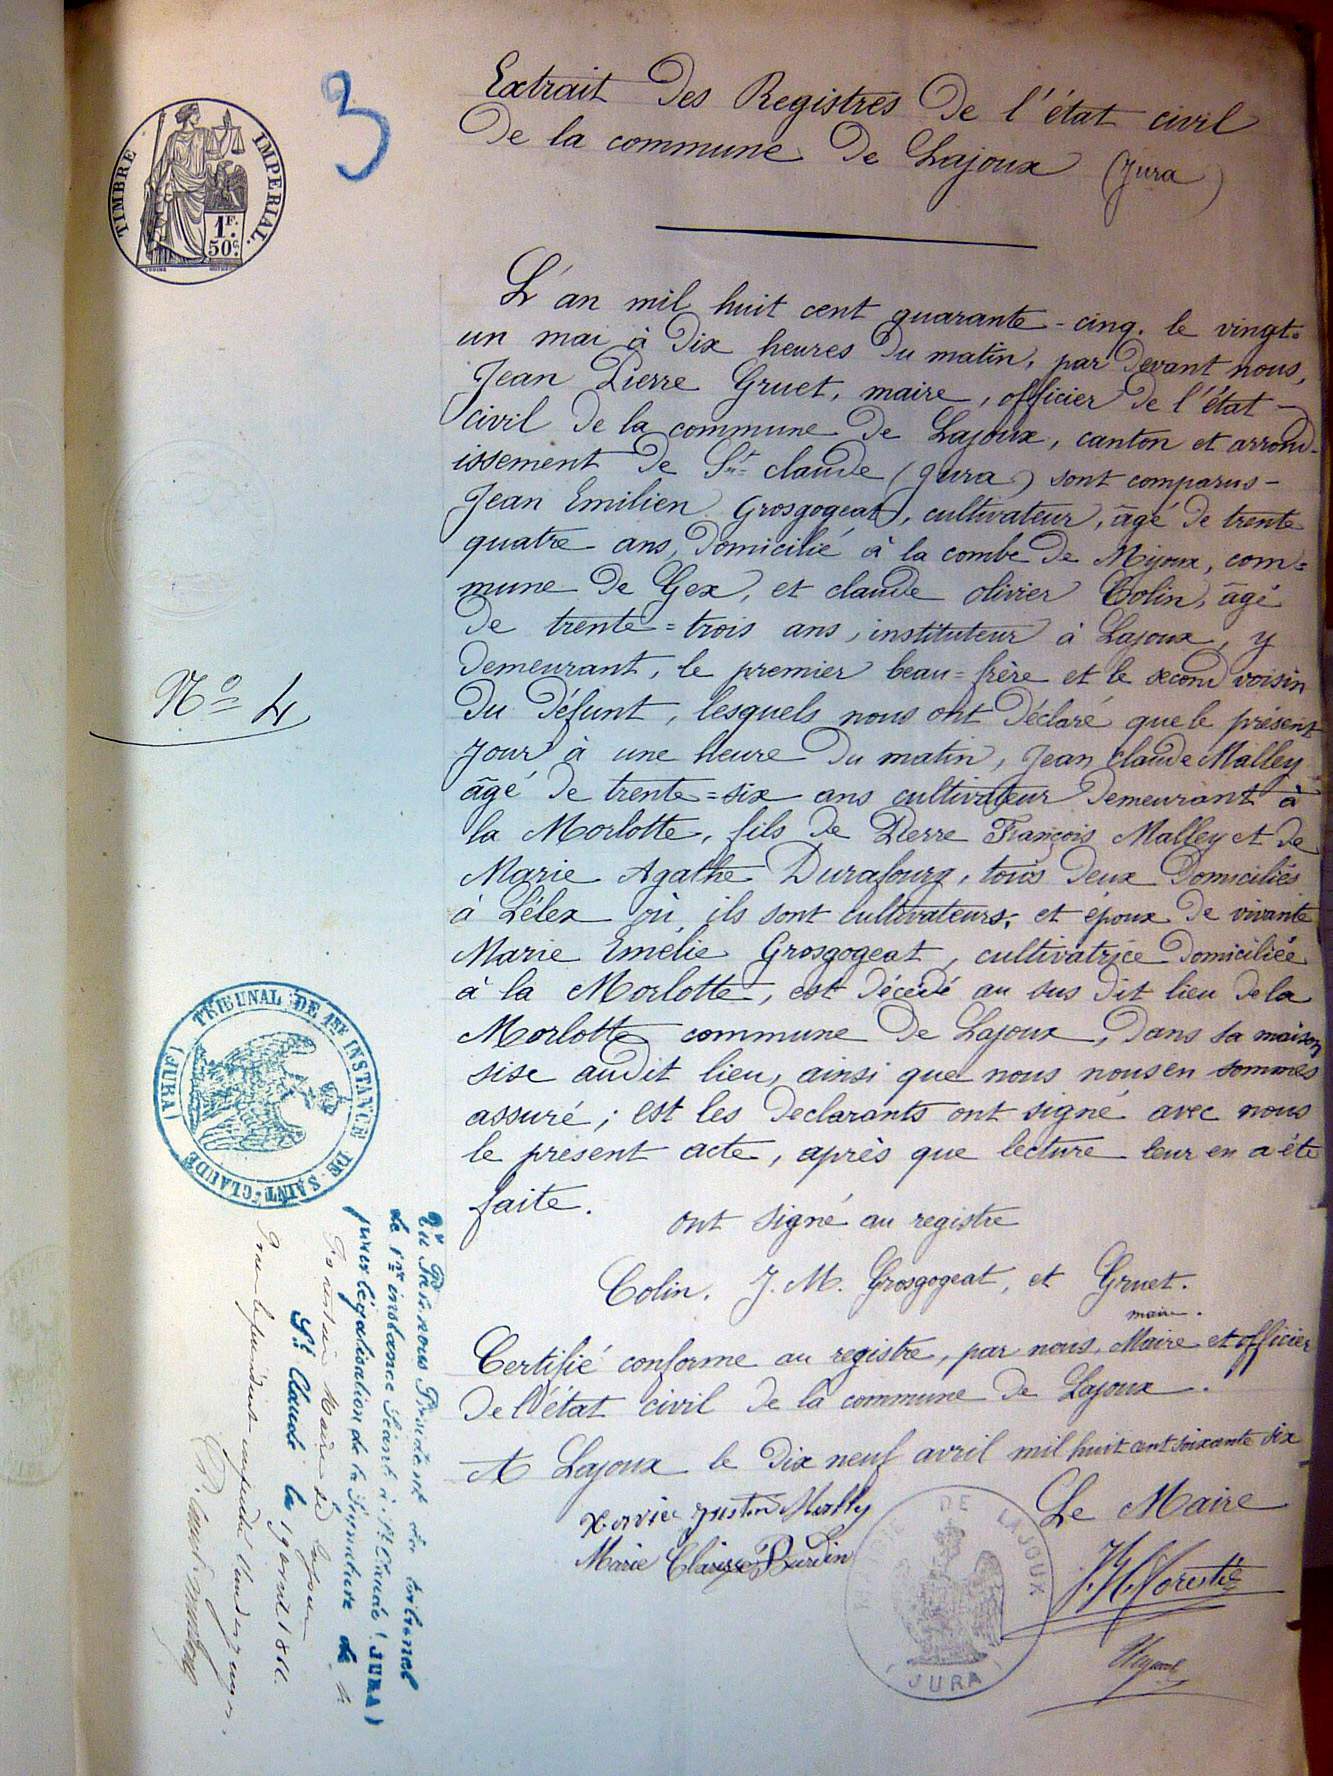 3
TIMBRE IMPERIAL.
1F.
50c.
Extrait des Registres de l'état civil
de la commune de Lajoux (Jura)
L'an mil huit cent quarante-cinq. le vingt-
un mai à dix heures du matin, par devant nous,
Jean Pierre Gruet, maire, officier de l'état-
civil de la commune de Lajoux, canton et arrond-
issement de St claude (Jura) sont comparus-
Jean Emilien Grosgogeat, cultivateur, âgé de trente
quatre ans, domicilié à la combe de Mijoux, com=
mune de Gex, et claude olivier Colin, âgé
de trente=trois ans, instituteur à Lajoux, y
demeurant, le premier beau=frère et le second voisin
du défunt, lesquels nous ont déclaré que le présent
jour à une heure du matin, Jean Claude Malley
âgé de trente=six ans cultivateur demeurant à
la Morlotte, fils de Pierre François Malley et de
Marie Agathe Durafourg, tous deux domiciliés
à Lélex où ils sont cultivateurs, et époux de vivante
Marie Emélie Grosgogeat, cultivatrice domiciliée
à la Morlotte, est décédé au sus dit lieu de la
Morlotte commune de Lajoux, dans sa maison
sise audit lieu, ainsi que nous nous en sommes
assuré; est les déclarants ont signé avec nous
le présent acte, après que lecture leur en a été
faite.
ont signé au registre
Colin. J. M. Grosgogeat, et Gruet.
maire.
Certifié conforme au registre, par nous, Maire et officier
de l'état civil de la commune de Lajoux.
A Lajoux le dix neuf avril mil huit cent soixante six
Le Maire
Justin Mally
Marie
MAIRIE DE LAJOUX
(JURA)
No 4
TRIBUNAL DE 1ERE INSTANCE DE SAINT-CLAUDE (JURA)
Vu Par nous Président du tribunal
de 1re instance Séant à St Claude (JURA)
pour légalisation de la Signature de M
Maire de Lajoux
St Claude le 19 avril 1866.